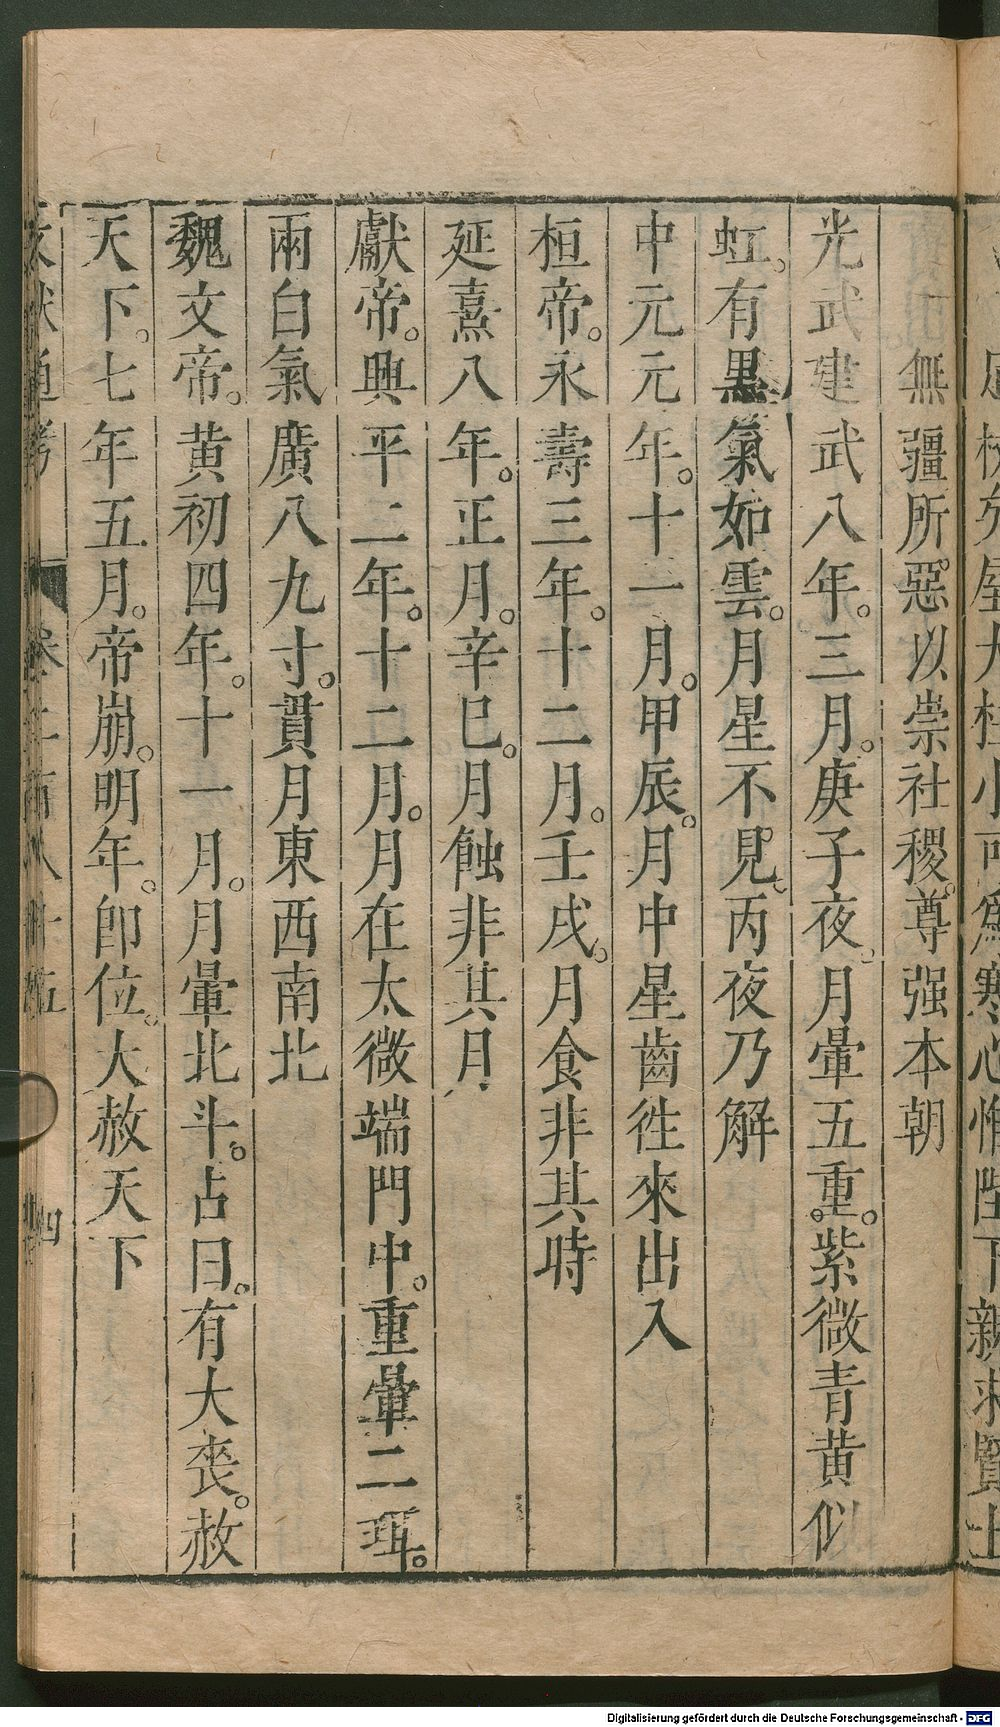 無疆所惡以崇社稷。尊强本朝
光武建武八年。三月。庚子夜。月暈五重。紫微青黄似
虹。有黒氣如雲。月星不見。丙夜乃解
中元元年。十一月。甲辰。月中星齒徃來出入
桓帝。永壽三年。十二月。壬戌。月食非其時
延熹八年。正月。辛巳。月蝕非其月
獻帝。興平二年。十二月。月在太微端門中。重暈二珥。
兩白氣廣八九寸。貫月東西南北
魏文帝。黄初四年。十一月。月暈北斗。占曰。有大喪。赦
天下。七年五月。帝崩。明年。卽位。大赦天下
Digitalisierung gefördert durch die Deutsche Forschungsgemeinschaft - DFG